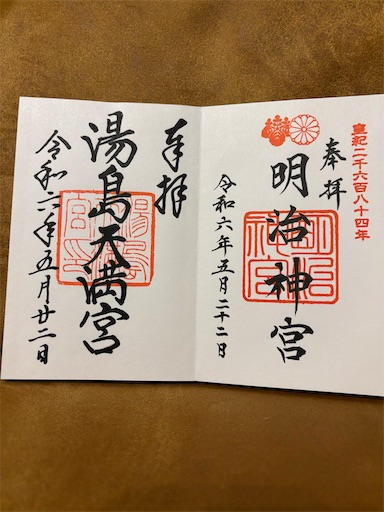 皇紀二千六百八十四年
奉拝
明治神宮
明治神宮
令和六年五月二十二日
奉拝
湯島天満宮
令和六年五月廿二日